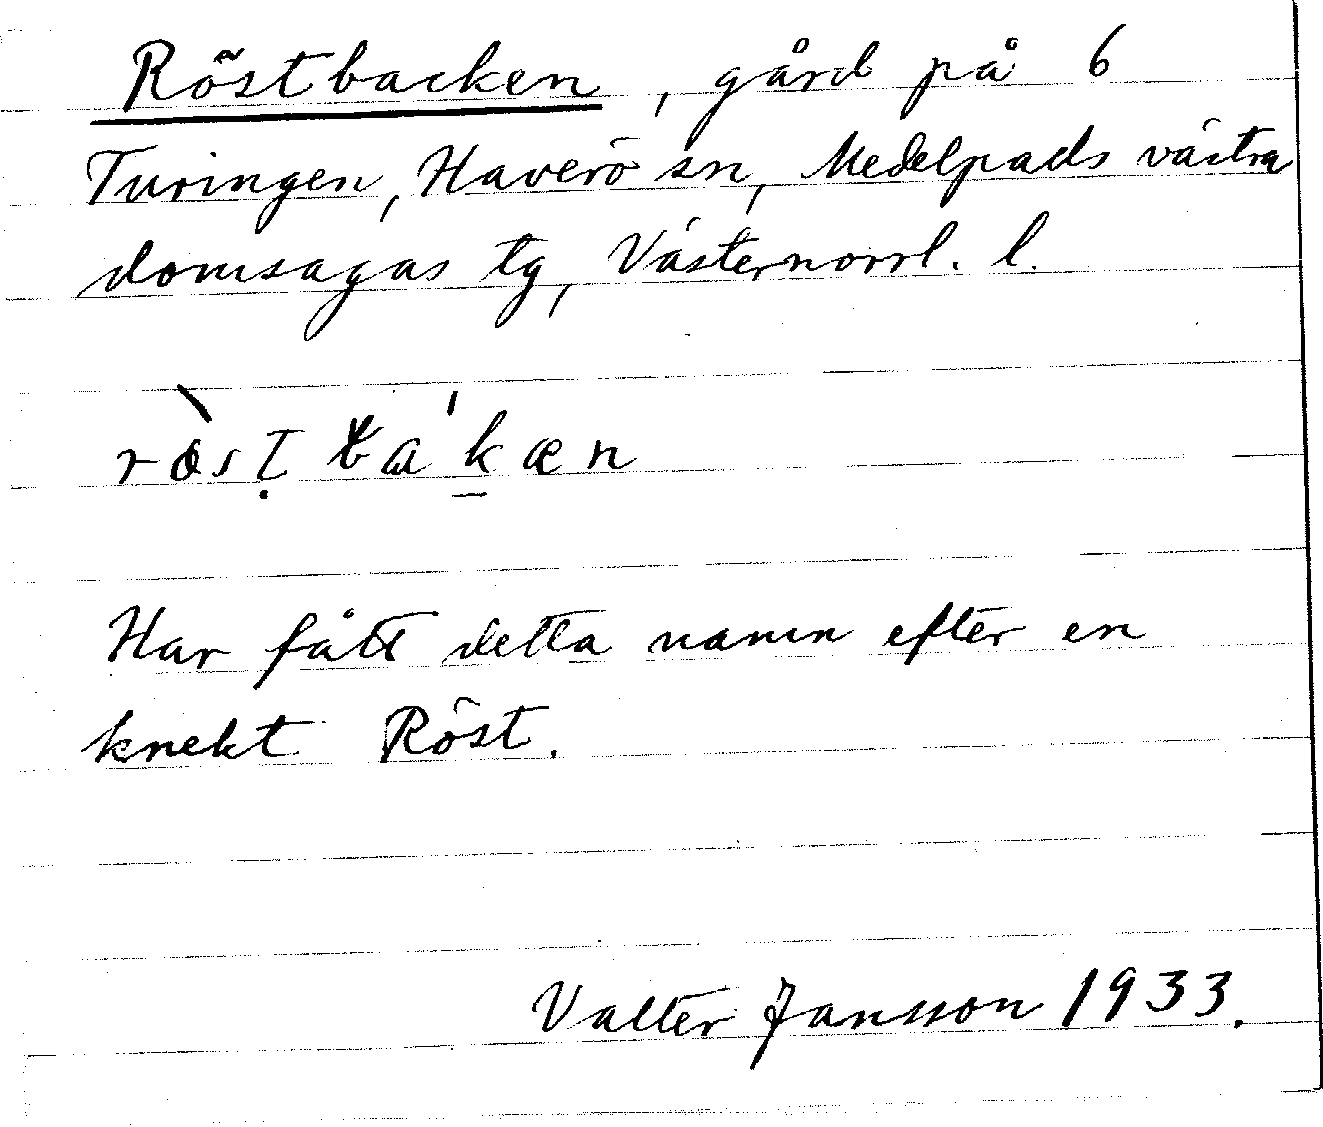 Röstbacken, gård på 6
Turingen, Haverö sn, Medelpads västra
domsagas tg, Västernorrl. l.
ròsṭ ba'k̠æn
Har fått detta namn efter en
knekt Röst.
Valter Jansson 1933.